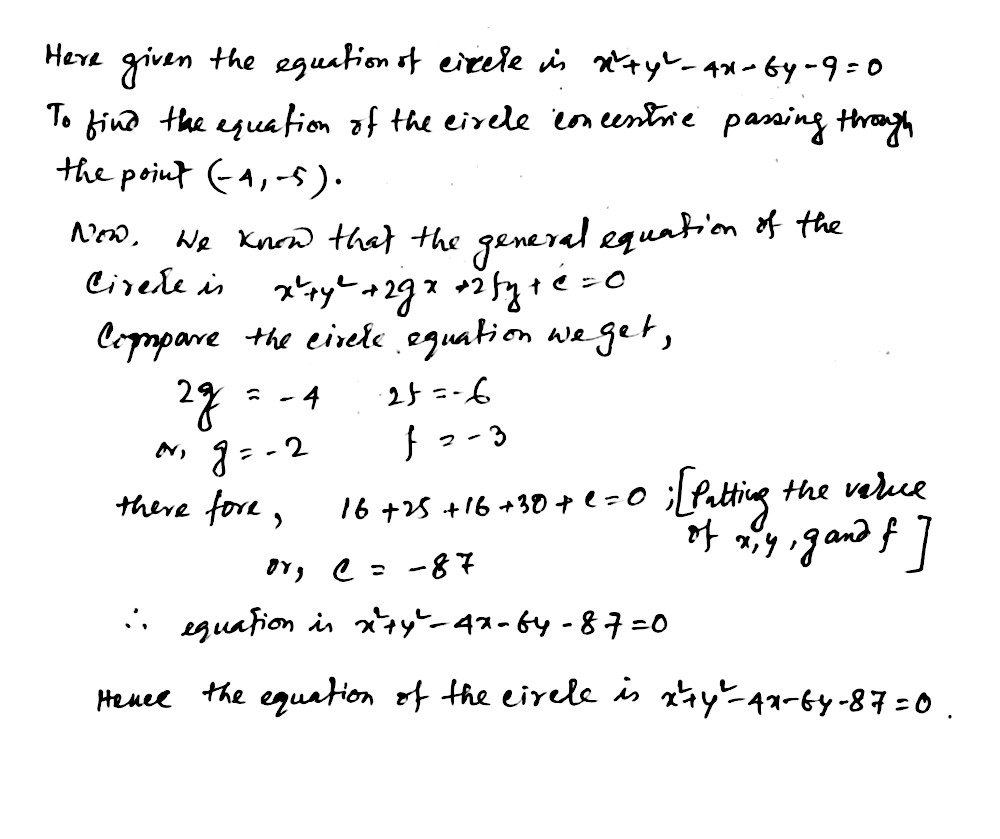 Here given the equation of circle is x²+y²-4x-6y-9=0
To find the equation of the circle concentric passing through
the point (-4,-5).
Now, We know that the general equation of the
Circle is x²+y²+2gx+2fy+c=0
Compare the circle equation we get,
2g = -4 2f=-6
or, g=-2 f=-3
there fore, 16+25+16+30+c=0 ;[Putting the value
of x,y,g and f]
or, c = -87
∴ equation is x²+y²-4x-6y-87=0
Hence the equation of the circle is x²+y²-4x-6y-87=0.